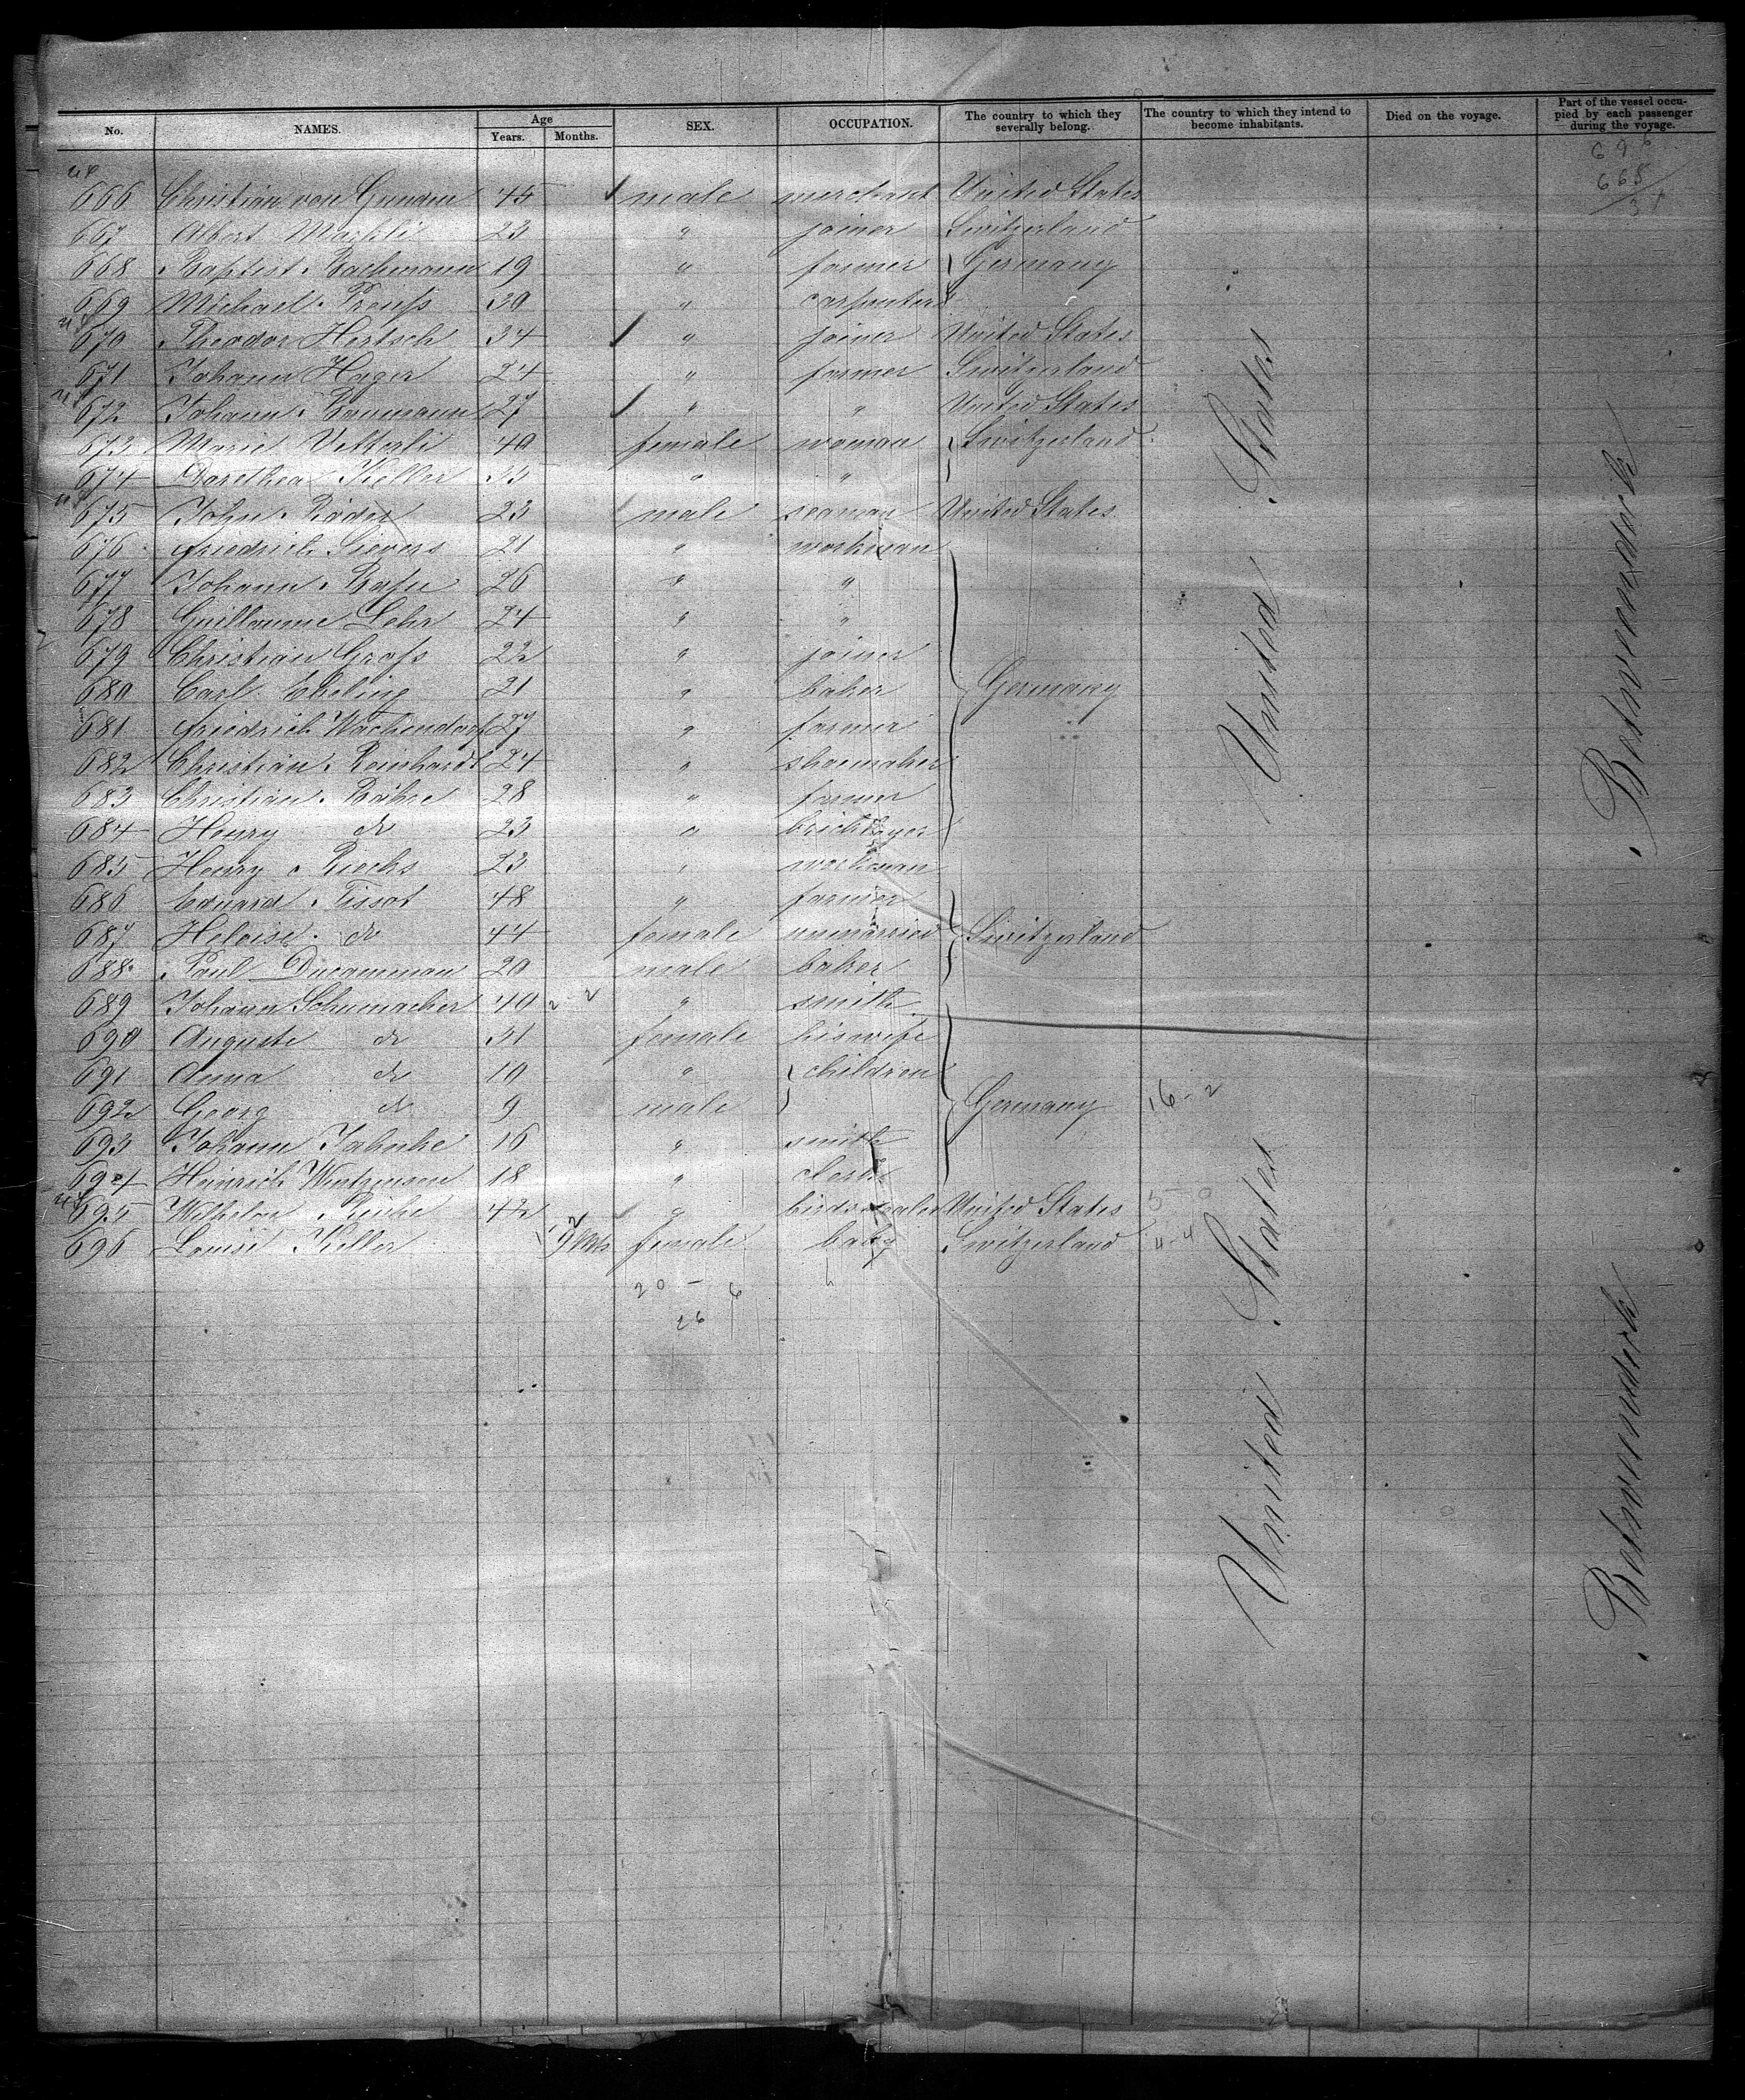 No. NAMES. Age Years. Months. SEX. OCCUPATION. The country to which they severally belong. The country to which they intend to become inhabitants. Died on the voyage. Part of the vessel occupied by each passenger during the voyage.
696
665
31
666 Christian von Gunden 45 male merchant United States
667 Albert 23 " joiner Switzerland
668 Baptist Bachmann 19 " farmer Germany
669 Michael Preiss 30 " carpenter
670 Theodor Hertsch 34 " joiner United States
671 Johann Hager 24 " farmer Switzerland
672 Johann Baumann 27 " " United States
673 Marie Vetterli 40 female woman Switzerland
674 Dorethea Keller 35 " "
675 John Röder 23 male seaman United States
676 Friedrich Sievers 21 " workman
677 Johann 26 " "
678 Guillaume Lehr 24 " "
679 Christian Gross 22 " joiner
680 Carl Ebeling 21 " baker Germany
681 Friedrich Wachendorf 27 " farmer
682 Christian Reinhardt 24 " shoemaker
683 Christian 28 " farmer
684 Henry do 23 " bricklayer
685 Henry Riechs 23 " workman
686 Eduard Tissot 48 " farmer
687 Heloise do 44 female unmarried Switzerland
688 Paul Ducommon 20 male baker
689 Johann Schumacher 40 2 2 " smith
690 Auguste do 31 female his wife
691 Anna do 10 " children
692 Georg do 9 male Germany 16-2
693 Johann Jahnke 16 " smith
694 Heinrich 18 " clerk
695 Wilhelm Reiche 42 " birdsdealer United States 5 0
696 Louise Keller female baby Switzerland 4-4
20 - 6
26
United States
Betweendeck
United States
Betweendeck